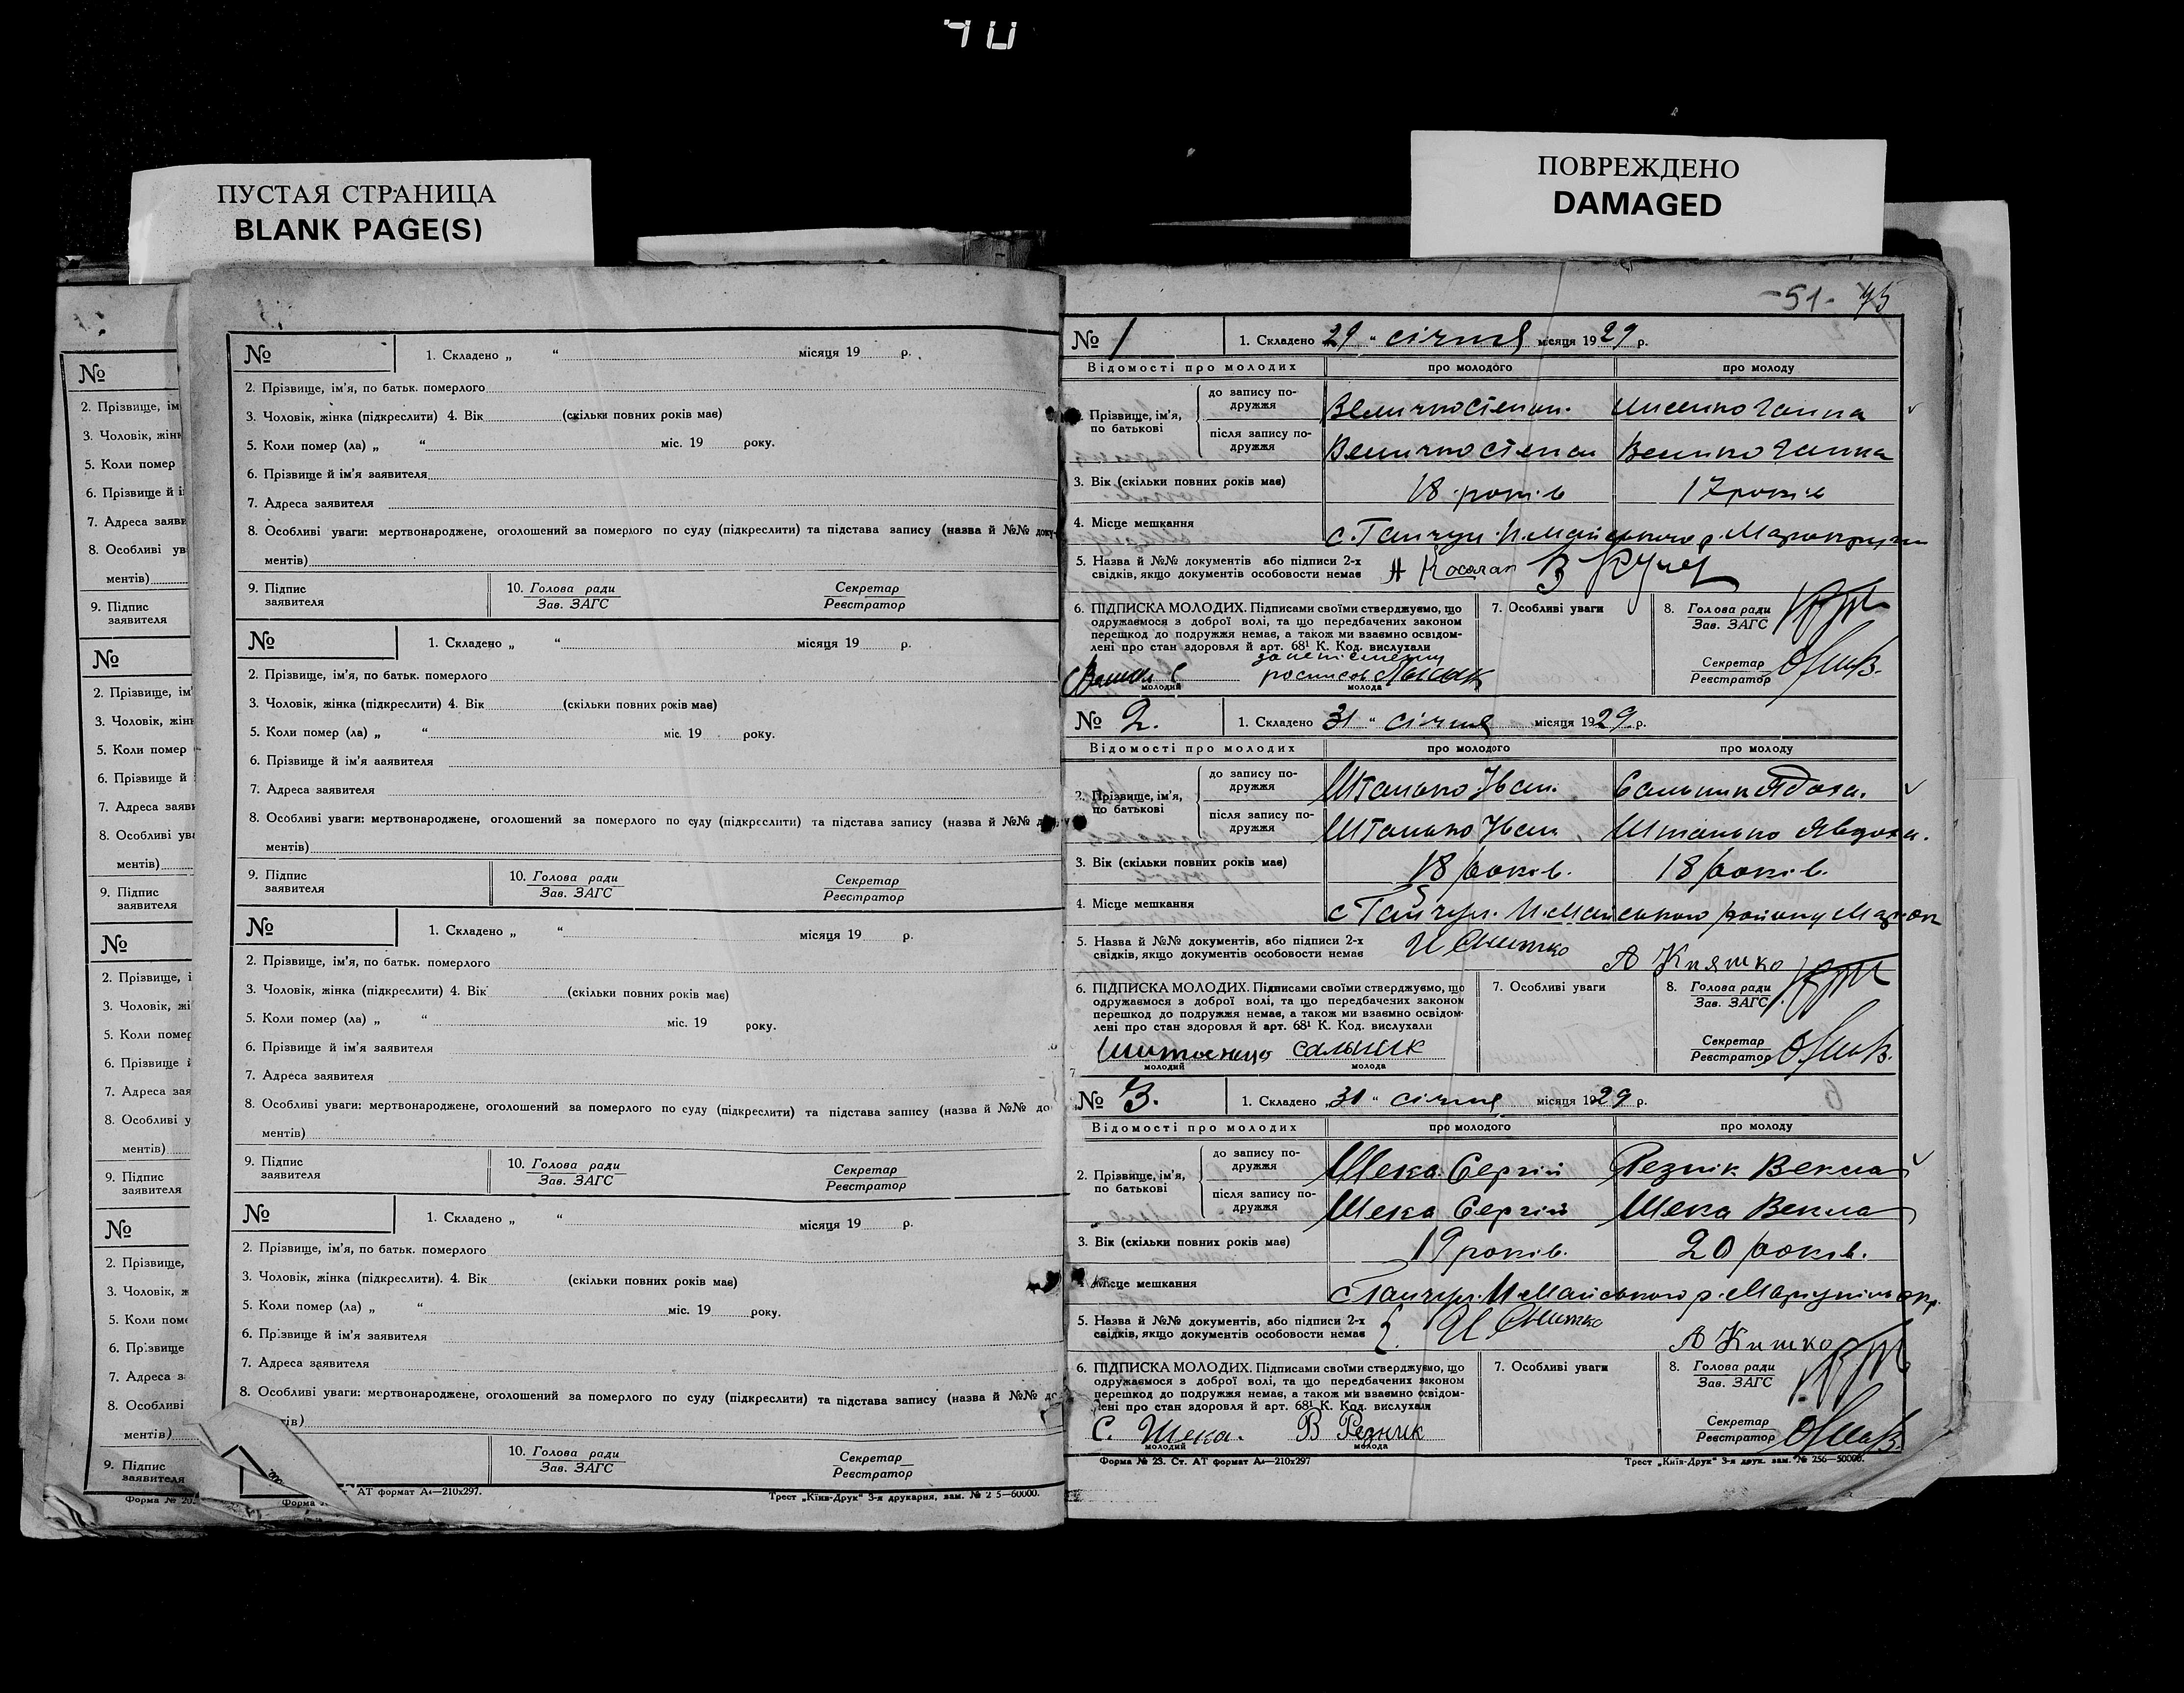 ПУСТАЯ СТРАНИЦА
BLANK PAGE(S)
ПОВРЕЖДЕНО
DAMAGED
№
2. Прізвище, ім
3. Чоловік, жін
5. Коли помер
6. Прізвище й
7. Адреса заяв
8. Особливі ув
ментів)
9. Підпис
заявителя
№
2. Прізвище, ім'
3. Чоловік, жін
5. Коли помер
6. Прізвище й
7. Адреса заяв
8. Особливі ув
ментів)
9. Підпис
заявителя
№
2. Прізвище, і
3. Чоловік, жі
5. Коли помер
6. Прізвище
7. Адреса зая
8. Особливі у
ментів)
9. Підпис
заявителя
№
2. Прізвище,
3. Чоловік, ж
5. Коли пом
6. Прізвище
7. Адреса з
8. Особливі
ментів)
9. Підпис
заявителя
Форма № 20
№ 1. Складено „ “ місяця 19 р.
2. Прізвище, ім'я, по батьк. померлого
3. Чоловік, жінка (підкреслити) 4. Вік (скільки повних років має)
5. Коли помер (ла) „ “ міс. 19 року.
6. Прізвище й ім'я заявителя
7. Адреса заявителя
8. Особливі уваги: мертвонароджене, оголошений за померлого по суду (підкреслити) та підстава запису (назва й №№ доку-
ментів)
9. Підпис заявителя 10. Голова ради Зав. ЗАГС Секретар Реєстратор
№ 1. Складено „ “ місяця 19 р.
2. Прізвище, ім'я, по батьк. померлого
3. Чоловік, жінка (підкреслити) 4. Вік (скільки повних років має)
5. Коли помер (ла) „ “ міс. 19 року.
6. Прізвище й ім'я заявителя
7. Адреса заявителя
8. Особливі уваги: мертвонароджене, оголошений за померлого по суду (підкреслити) та підстава запису (назва й №№
ментів)
9. Підпис заявителя 10. Голова ради Зав. ЗАГС Секретар Реєстратор
№ 1. Складено „ “ місяця 19 р.
2. Прізвище, ім'я, по батьк. померлого
3. Чоловік, жінка (підкреслити) 4. Вік (скільки повних років має)
5. Коли помер (ла) „ “ міс. 19 року.
6. Прізвище й ім'я заявителя
7. Адреса заявителя
8. Особливі уваги: мертвонароджене, оголошений за померлого по суду (підкреслити) та підстава запису (назва й №№ до
ментів)
9. Підпис заявителя 10. Голова ради Зав. ЗАГС Секретар Реєстратор
№ 1. Складено „ “ місяця 19 р.
2. Прізвище, ім'я, по батьк. померлого
3. Чоловік, жінка (підкреслити). 4. Вік (скільки повних років має)
5. Коли помер (ла) „ “ міс. 19 року.
6. Прізвище й ім'я заявителя
7. Адреса заявителя
8. Особливі уваги: мертвонароджене, оголошений за померлого по суду (підкреслити) та підстава запису (назва й №№ до
ів)
10. Голова ради Зав. ЗАГС Секретар Реєстратор
Форма АТ формат А4—210х297. Трест „Київ-Друк“ 3-я друкарня, зам. № 2 5—60000.
-51- 45
№ 1 1. Складено 29 “ січня місяця 1929 р.
Відомості про молодих про молодого про молоду
2. Прізвище, ім'я, по батькові
до запису подружжя Величко Степан. Ганна
після запису подружжя Величко Степан Величко Ганна
3. Вік (скільки повних років має) 18 років 17 років
4. Місце мешкання с. Гайчул П.Майського р.
5. Назва й №№ документів або підписи 2-х
свідків, якщо документів особовости немає
6. ПІДПИСКА МОЛОДИХ. Підписами своїми стверджуємо, що
одружаємося з доброї волі, та що передбачених законом
перешкод до подружжя немає, а також ми взаємно освідом-
лені про стан здоровля й арт. 68¹ К. Код. вислухали
молодий молода
7. Особливі уваги
8. Голова ради Зав. ЗАГС
Секретар Реєстратор
№ 2. 1. Складено 31 “ січня місяця 1929 р.
Відомості про молодих про молодого про молоду
2. Прізвище, ім'я, по батькові
до запису подружжя Штанько Иван. Сальник
після запису подружжя Штанько Иван Штанько Явдоха.
3. Вік (скільки повних років має) 18 років. 18 років.
4. Місце мешкання с Гайчул. П.Майського району
5. Назва й №№ документів, або підписи 2-х
свідків, якщо документів особовости немає
6. ПІДПИСКА МОЛОДИХ. Підписами своїми стверджуємо, що
одружаємося з доброї волі, та що передбачених законом
перешкод до подружжя немає, а також ми взаємно освідом-
лені про стан здоровля й арт. 68¹ К. Код. вислухали
сальник
молодий молода
7. Особливі уваги
8. Голова ради Зав. ЗАГС
Секретар Реєстратор
№ 3. 1. Складено „31 “ січня місяця 1929 р.
Відомості про молодих про молодого про молоду
2. Прізвище, ім'я, по батькові
до запису подружжя Шека Сергій Резнік Векла
після запису подружжя Шека Сергій Шека Векла
3. Вік (скільки повних років має) 19 років. 20 років.
4. Місце мешкання с Гайчул. П.Майського р. Маріупільс окр.
5. Назва й №№ документів, або підписи 2-х
свідків, якщо документів особовости немає
6. ПІДПИСКА МОЛОДИХ. Підписами своїми стверджуємо, що
одружаємося з доброї волі, та що передбачених законом
перешкод до подружжя немає, а також ми взаємно освідом-
лені про стан здоровля й арт. 68¹ К. Код. вислухали
С. Шека. В Резник
молодий молода
7. Особливі уваги
8. Голова ради Зав. ЗАГС
Секретар Реєстратор
Форма № 23. Ст. АТ формат А4—210х297 Трест „Київ-Друк“ 3-я друк. зам. № 256—50000.